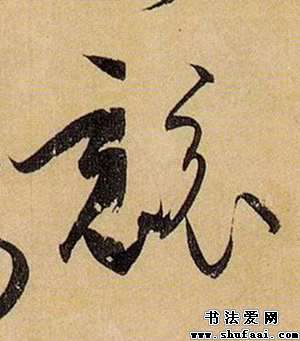 競
书法爱网
www.shufaai.com